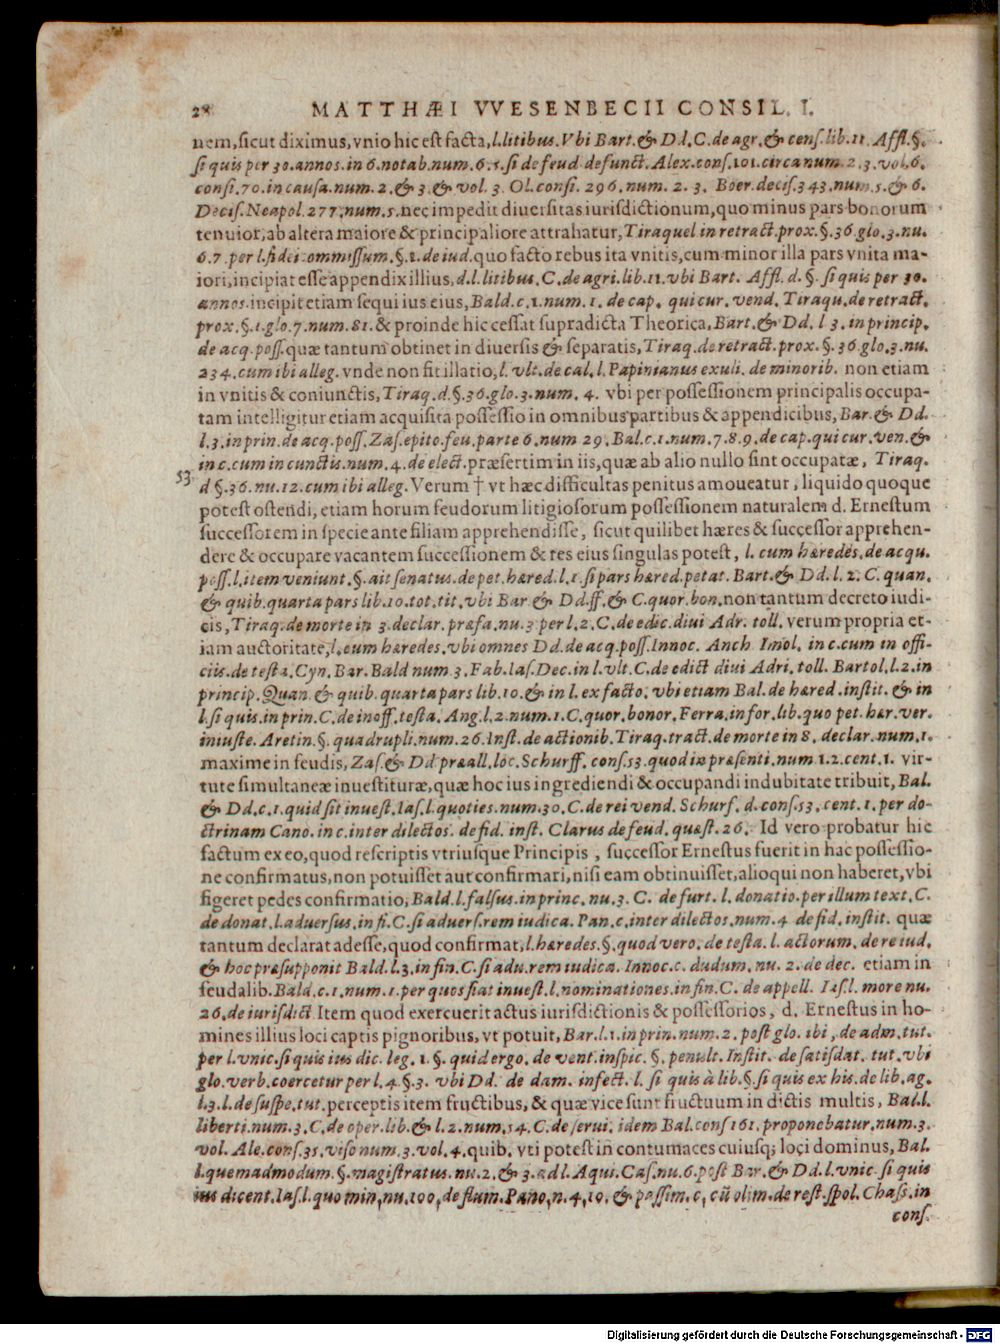 28 MATTHÆI VVESENBECII CONSIL. I.
nem, sicut diximus, vnio hic est facta, l. litibus. Vbi Bart. & Dd. C. de agr. & cens. lib. 11. Affl. §.
si quis per 30. annos. in 6. notab. num. 6. s. si de feud. defunct. Alex. cons. 101. circa num. 2. 3. vol. 6.
consi. 70. in causa. num. 2. & 3. & vol. 3. Ol. consi. 296. num. 2. 3. Boer. decis. 343. num. 5. & 6.
Decis. Neapol. 277. num. 5. nec impedit diuersitas iurisdictionum, quo minus pars bonorum
tenuior, ab altera maiore & principaliore attrahatur, Tiraquel in retract. prox. §. 36. glo. 3. nu.
6. 7. per l. fideicommissum. §. 1. de iud. quo facto rebus ita vnitis, cum minor illa pars vnita ma-
iori, incipiat esse appendix illius, d. l. litibus. C. de agri. lib. 11. vbi Bart. Affl. d. §. si quis per 30.
annos. incipit etiam sequi ius eius, Bald. c. 1. num. 1. de cap. qui cur. vend. Tiraqu. de retract.
prox. §. 1. glo. 7. num. 81. & proinde hic cessat supradicta Theorica, Bart. & Dd. l 3. in princip.
de acq. poss. quæ tantum obtinet in diuersis & separatis, Tiraq. de retract. prox. §. 36. glo. 3. nu.
234. cum ibi alleg. vnde non fit illatio, l. vlt. de cal. l. Papinianus exuli. de minorib. non etiam
in vnitis & coniunctis, Tiraq. d. §. 36. glo. 3. num. 4. vbi per possessionem principalis occupa-
tam intelligitur etiam acquisita possessio in omnibus partibus & appendicibus, Bar. & Dd.
l. 3. in prin. de acq. poss. Zas. epito. feu. parte 6. num 29. Bal. c. 1. num. 7. 8. 9. de cap. qui cur. ven. &
in c. cum in cunctis. num. 4. de elect. præsertim in iis, quæ ab alio nullo sint occupatæ, Tiraq.
53. d §. 36. nu. 12. cum ibi alleg. Verum † vt hæc difficultas penitus amoueatur, liquido quoque
potest ostendi, etiam horum feudorum litigiosorum possessionem naturalem d. Ernestum
successorem in specie ante filiam apprehendisse, sicut quilibet hæres & successor apprehen-
dere & occupare vacantem successionem & res eius singulas potest, l. cum hæredes. de acqu.
poss. l. item veniunt. §. ait senatus. de pet. hæred. l. 1. si pars hæred. petat. Bart. & Dd. l. 2. C. quan.
& quib. quarta pars lib. 10. tot. tit. vbi Bar & Dd. ff. & C. quor. bon. non tantum decreto iudi-
cis, Tiraq. de morte in 3. declar. præfa. nu. 3 per l. 2. C. de edic. diui Adr. toll. verum propria et-
iam auctoritate, l. cum hæredes. vbi omnes Dd. de acq. poss. Innoc. Anch Imol. in c. cum in offi-
ciis. de testa. Cyn. Bar. Bald num. 3. Fab. Ias. Dec. in l. vlt. C. de edict diui Adri. toll. Bartol. l. 2. in
princip. Quan. & quib. quarta pars lib. 10. & in l. ex facto. vbi etiam Bal. de hæred. instit. & in
l. si quis. in prin. C. de inoff. testa. Ang. l. 2. num. 1. C. quor. bonor. Ferra. in for. lib. quo pet. hær. ver.
iniuste. Aretin. §. quadrupli. num. 26. Inst. de actionib. Tiraq. tract. de morte in 8. declar. num. 1.
maxime in feudis, Zas. & Dd præall. loc. Schurff. cons. 53. quod in præsenti. num 1. 2. cent. 1. vir-
tute simultaneæ inuestituræ, quæ hoc ius ingrediendi & occupandi indubitate tribuit, Bal.
& Dd. c. 1. quid sit inuest. Ias. l. quoties. num. 30. C. de rei vend. Schurf. d. cons. 53. cent. 1. per do-
ctrinam Cano. in c. inter dilectos. de fid. inst. Clarus de feud. quæst. 26. Id vero probatur hic
factum ex eo, quod rescriptis vtriusque Principis, successor Ernestus fuerit in hac possessio-
ne confirmatus, non potuisset aut confirmari, nisi eam obtinuisset, alioqui non haberet, vbi
figeret pedes confirmatio, Bald. l. falsus. in princ. nu. 3. C. de furt. l. donatio. per illum text. C.
de donat. l. aduersus. in fi. C. si aduers. rem iudica. Pan. c. inter dilectos. num. 4 de fid. instit. quæ
tantum declarat adesse, quod confirmat, l. hæredes. §. quod vero. de testa. l. actorum. de re iud.
& hoc præsupponit Bald. l. 3. in fin. C. si adu. rem iudica. Innoc. c. dudum. nu. 2. de dec. etiam in
feudalib. Bald. c. 1. num. 1. per quos fiat inuest. l. nominationes. in fin. C. de appell. Ias. l. more nu.
26. de iurisdict Item quod exercuerit actus iurisdictionis & possessorios, d. Ernestus in ho-
mines illius loci captis pignoribus, vt potuit, Bar. l. 1. in prin. num. 2. post glo. ibi, de adm. tut.
per l. vnic. si quis ius dic. leg. 1. §. quid ergo. de vent. inspic. §. penult. Instit. de satisdat. tut. vbi
glo. verb. coercetur per l. 4. §. 3. vbi Dd. de dam. infect. l. si quis à lib. §. si quis ex his. de lib. ag.
l. 3. l. de suspe. tut. perceptis item fructibus, & quæ vice sunt fructuum in dictis multis, Bal. l.
liberti. num. 3. C. de oper. lib. & l. 2. num. 54. C. de serui. idem Bal. cons 161. proponebatur. num. 3.
vol. Ale. cons. 35. viso num. 3. vol. 4. quib. vti potest in contumaces cuiusq; loci dominus, Bal.
l. quemadmodum. §. magistratus. nu. 2. & 3. ad l. Aqui. Cas. nu. 6. post Bar. & Dd. l. vnic si quis
ius dicent. Ias. l. quo min. nu. 100. de flum. Pano. n. 4. 10. & passim. c. cū olim. de rest. spol. Chass. in
cons.
Digitalisierung gefördert durch die Deutsche Forschungsgemeinschaft - DFG